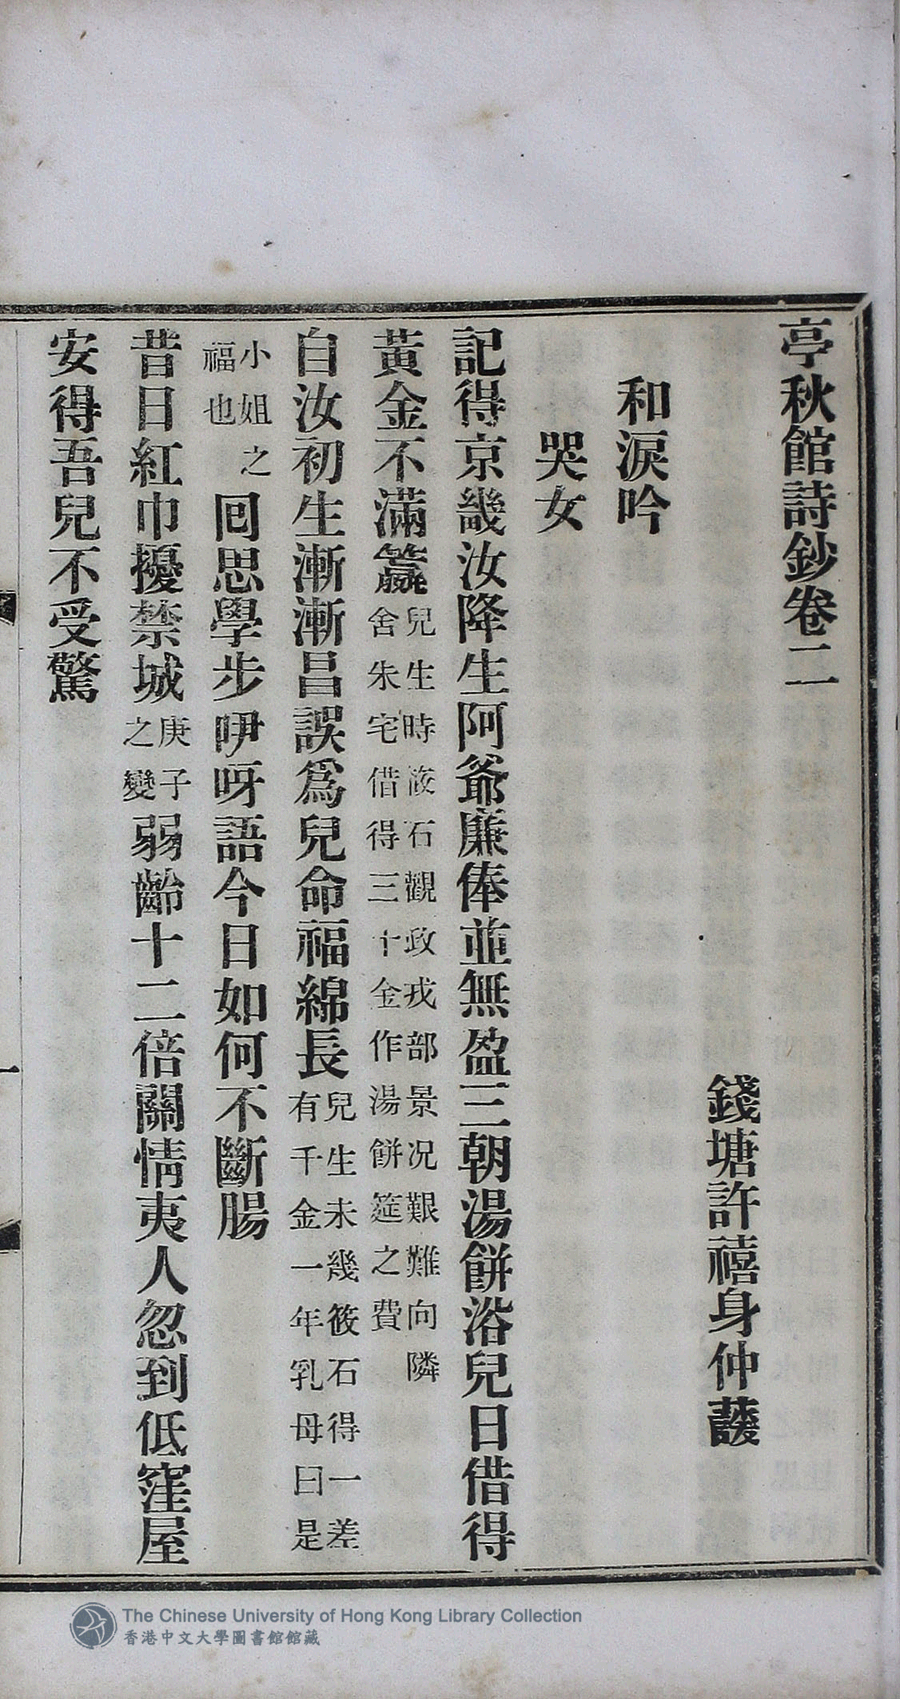 亭秋館詩鈔卷二
錢塘許禧身仲諼
和淚吟
哭女
記得京畿汝降生阿爺廉俸並無盈三朝湯餅浴兒日借得
黃金不滿籯兒生時筱石觀政戎部景况艱難向隣舍朱宅借得三十金作湯餅筵之費
自汝初生漸漸昌誤爲兒命福綿長兒生未幾筱石得一差有千金一年乳母曰是
小姐之福也回思學步咿呀語今日如何不斷腸
昔日紅巾擾禁城庚子之變弱齡十二倍關情夷人忽到低窪屋
安得吾兒不受驚
一
The Chinese University of Hong Kong Library Collection
香港中文大學圖書館館藏